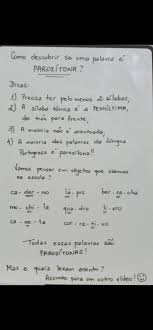 Como descobrir se uma palavra é
PAROXÍTONA?
Dicas:
1) Precisa ter pelo menos 2 sílabas,
2) A sílaba tônica é a PENÚLTIMA,
de trás para frente,
3) A maioria não é acentuada,
4) A maioria das palavras da língua
Portuguesa é paroxítona!!
Vamos pensar em objetos que usamos
na escola?
ca - der - no lá - pis bor - ra - cha
mo - chi - la qua - dro li - vro
ca - ne - ta cor - re - ti - vo
Todas essas palavras são
PAROXÍTONAS!
Mas e quais levam acento?
Assunto para um outro vídeo!